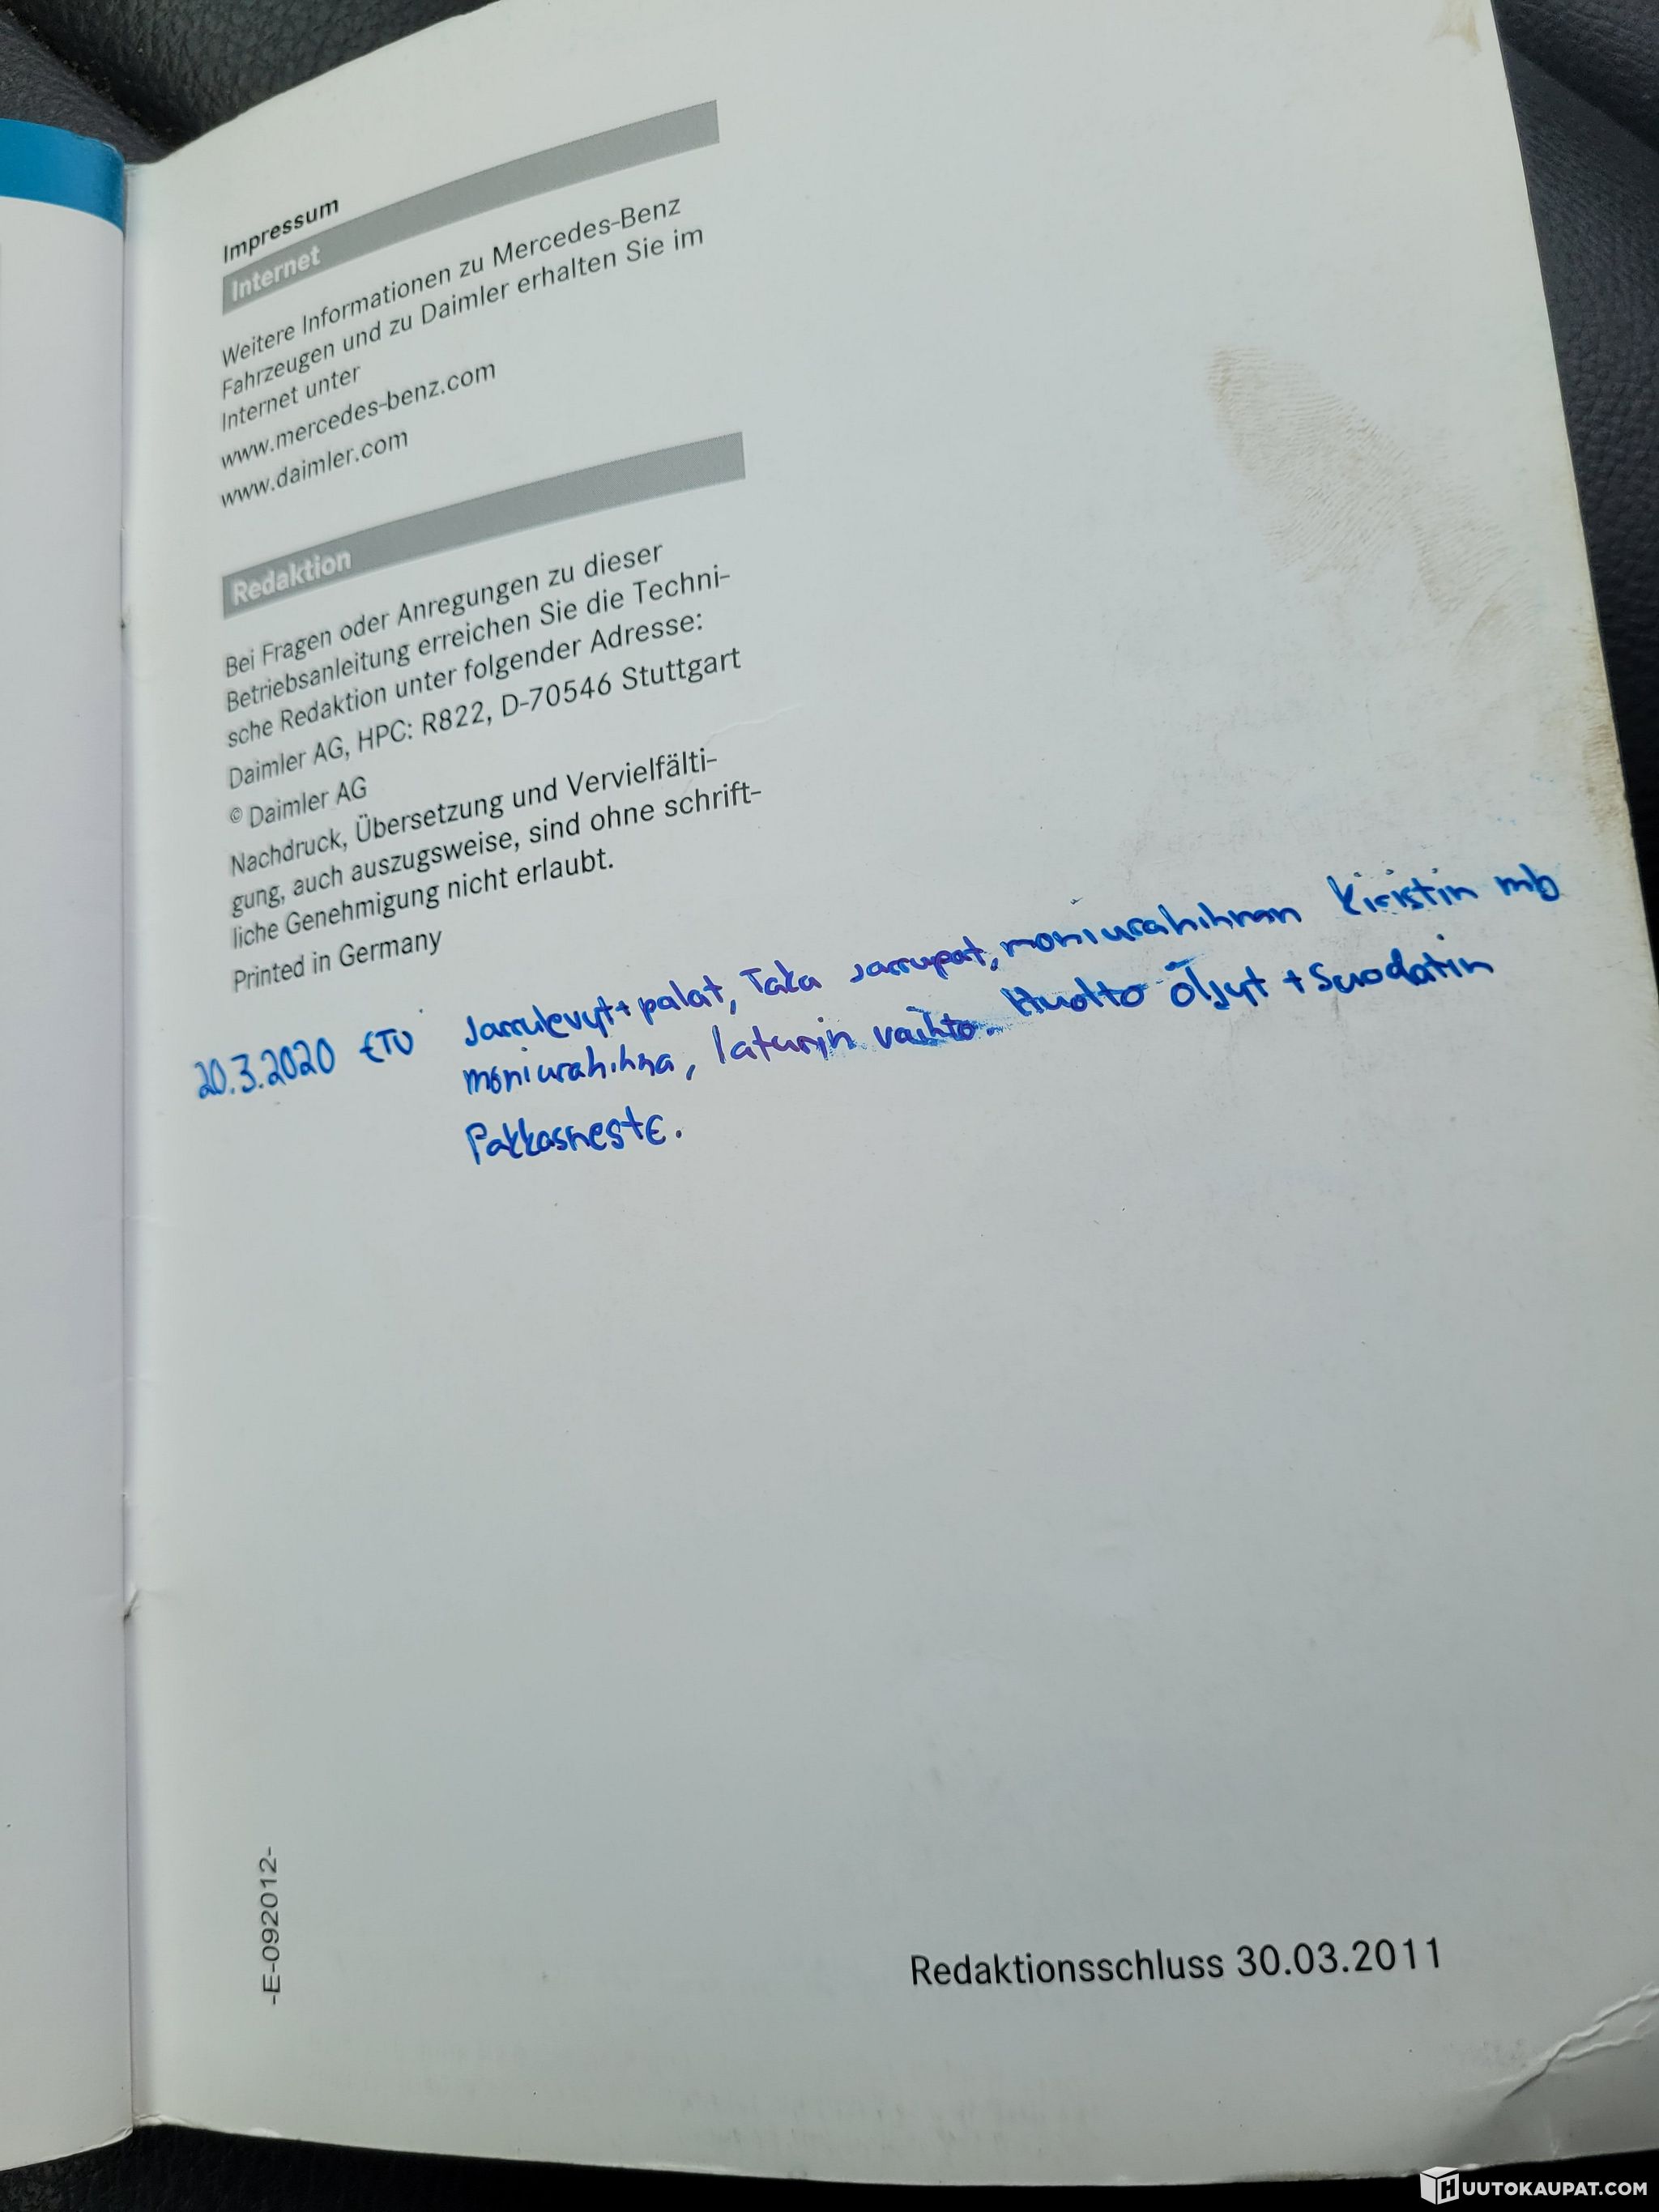 Impressum
Internet
Weitere Informationen zu Mercedes-Benz
Fahrzeugen und zu Daimler erhalten Sie im
Internet unter
www.mercedes-benz.com
www.daimler.com
Redaktion
Bei Fragen oder Anregungen zu dieser
Betriebsanleitung erreichen Sie die Techni-
sche Redaktion unter folgender Adresse:
Daimler AG, HPC: R822, D-70546 Stuttgart
© Daimler AG
Nachdruck, Übersetzung und Vervielfälti-
gung, auch auszugsweise, sind ohne schrift-
liche Genehmigung nicht erlaubt.
Printed in Germany
20.3.2020 ETU Jarrulevyt+palat, Taka Jarrupat, moniurahihnan Kiristin mb
moniurahihna, laturin vaihto. Huolto öljyt + Suodatin
Pakkasneste.
-E-092012-
Redaktionsschluss 30.03.2011
HUUTOKAUPAT.COM